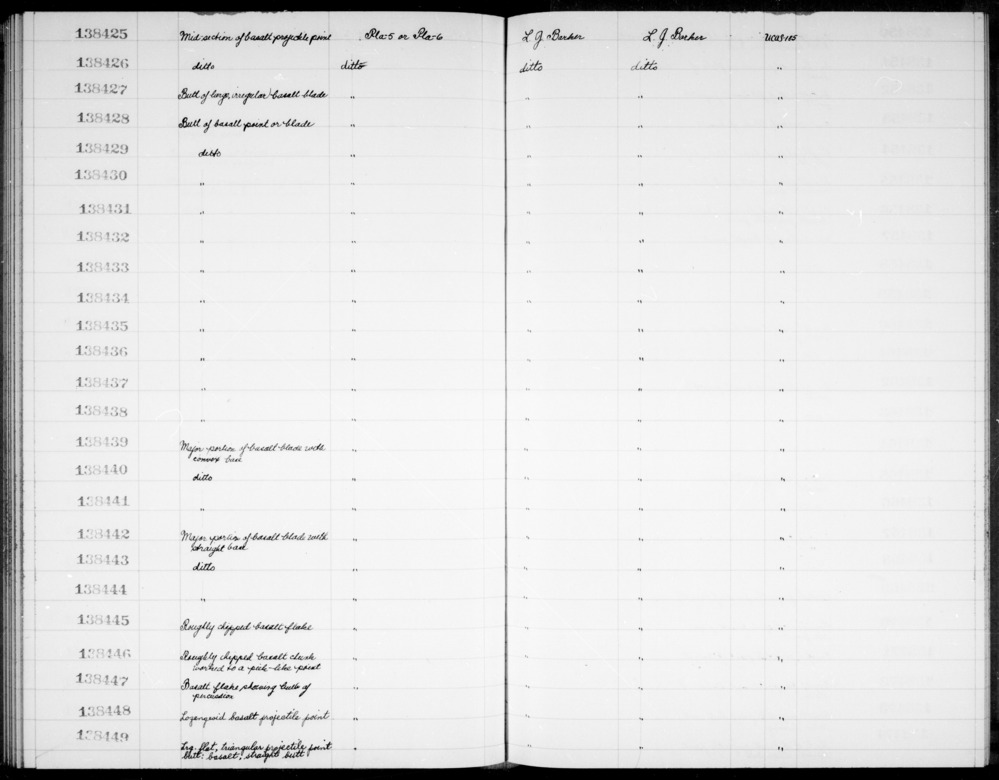 138425 Mid-section of basalt projectile point Pla-5 or Pla-6 L. J. Barker L. J. Barker UCAS-105
138426 ditto ditto ditto ditto "
138427 Butt of large, irregular basalt blade " " " "
138428 Butt of basalt point or blade " " " "
138429 ditto " " " "
138430 " " " " "
138431 " " " " "
138432 " " " " "
138433 " " " " "
138434 " " " " "
138435 " " " " "
138436 " " " " "
138437 " " " " "
138438 " " " " "
138439 Major portion of basalt blade with " " " "
convex base
138440 ditto " " " "
138441 " " " " "
138442 Major portion of basalt blade with " " " "
straight base
138443 ditto " " " "
138444 " " " " "
138445 Roughly chipped basalt flake " " " "
138446 Roughly chipped basalt chunk " " " "
worked to a pick-like point
138447 Basalt flake showing bulb of " " " "
percussion
138448 Lozengeoid basalt projectile point " " " "
138449 Lrg. flat, triangular projectile point " " " "
butt: basalt; straight butt.